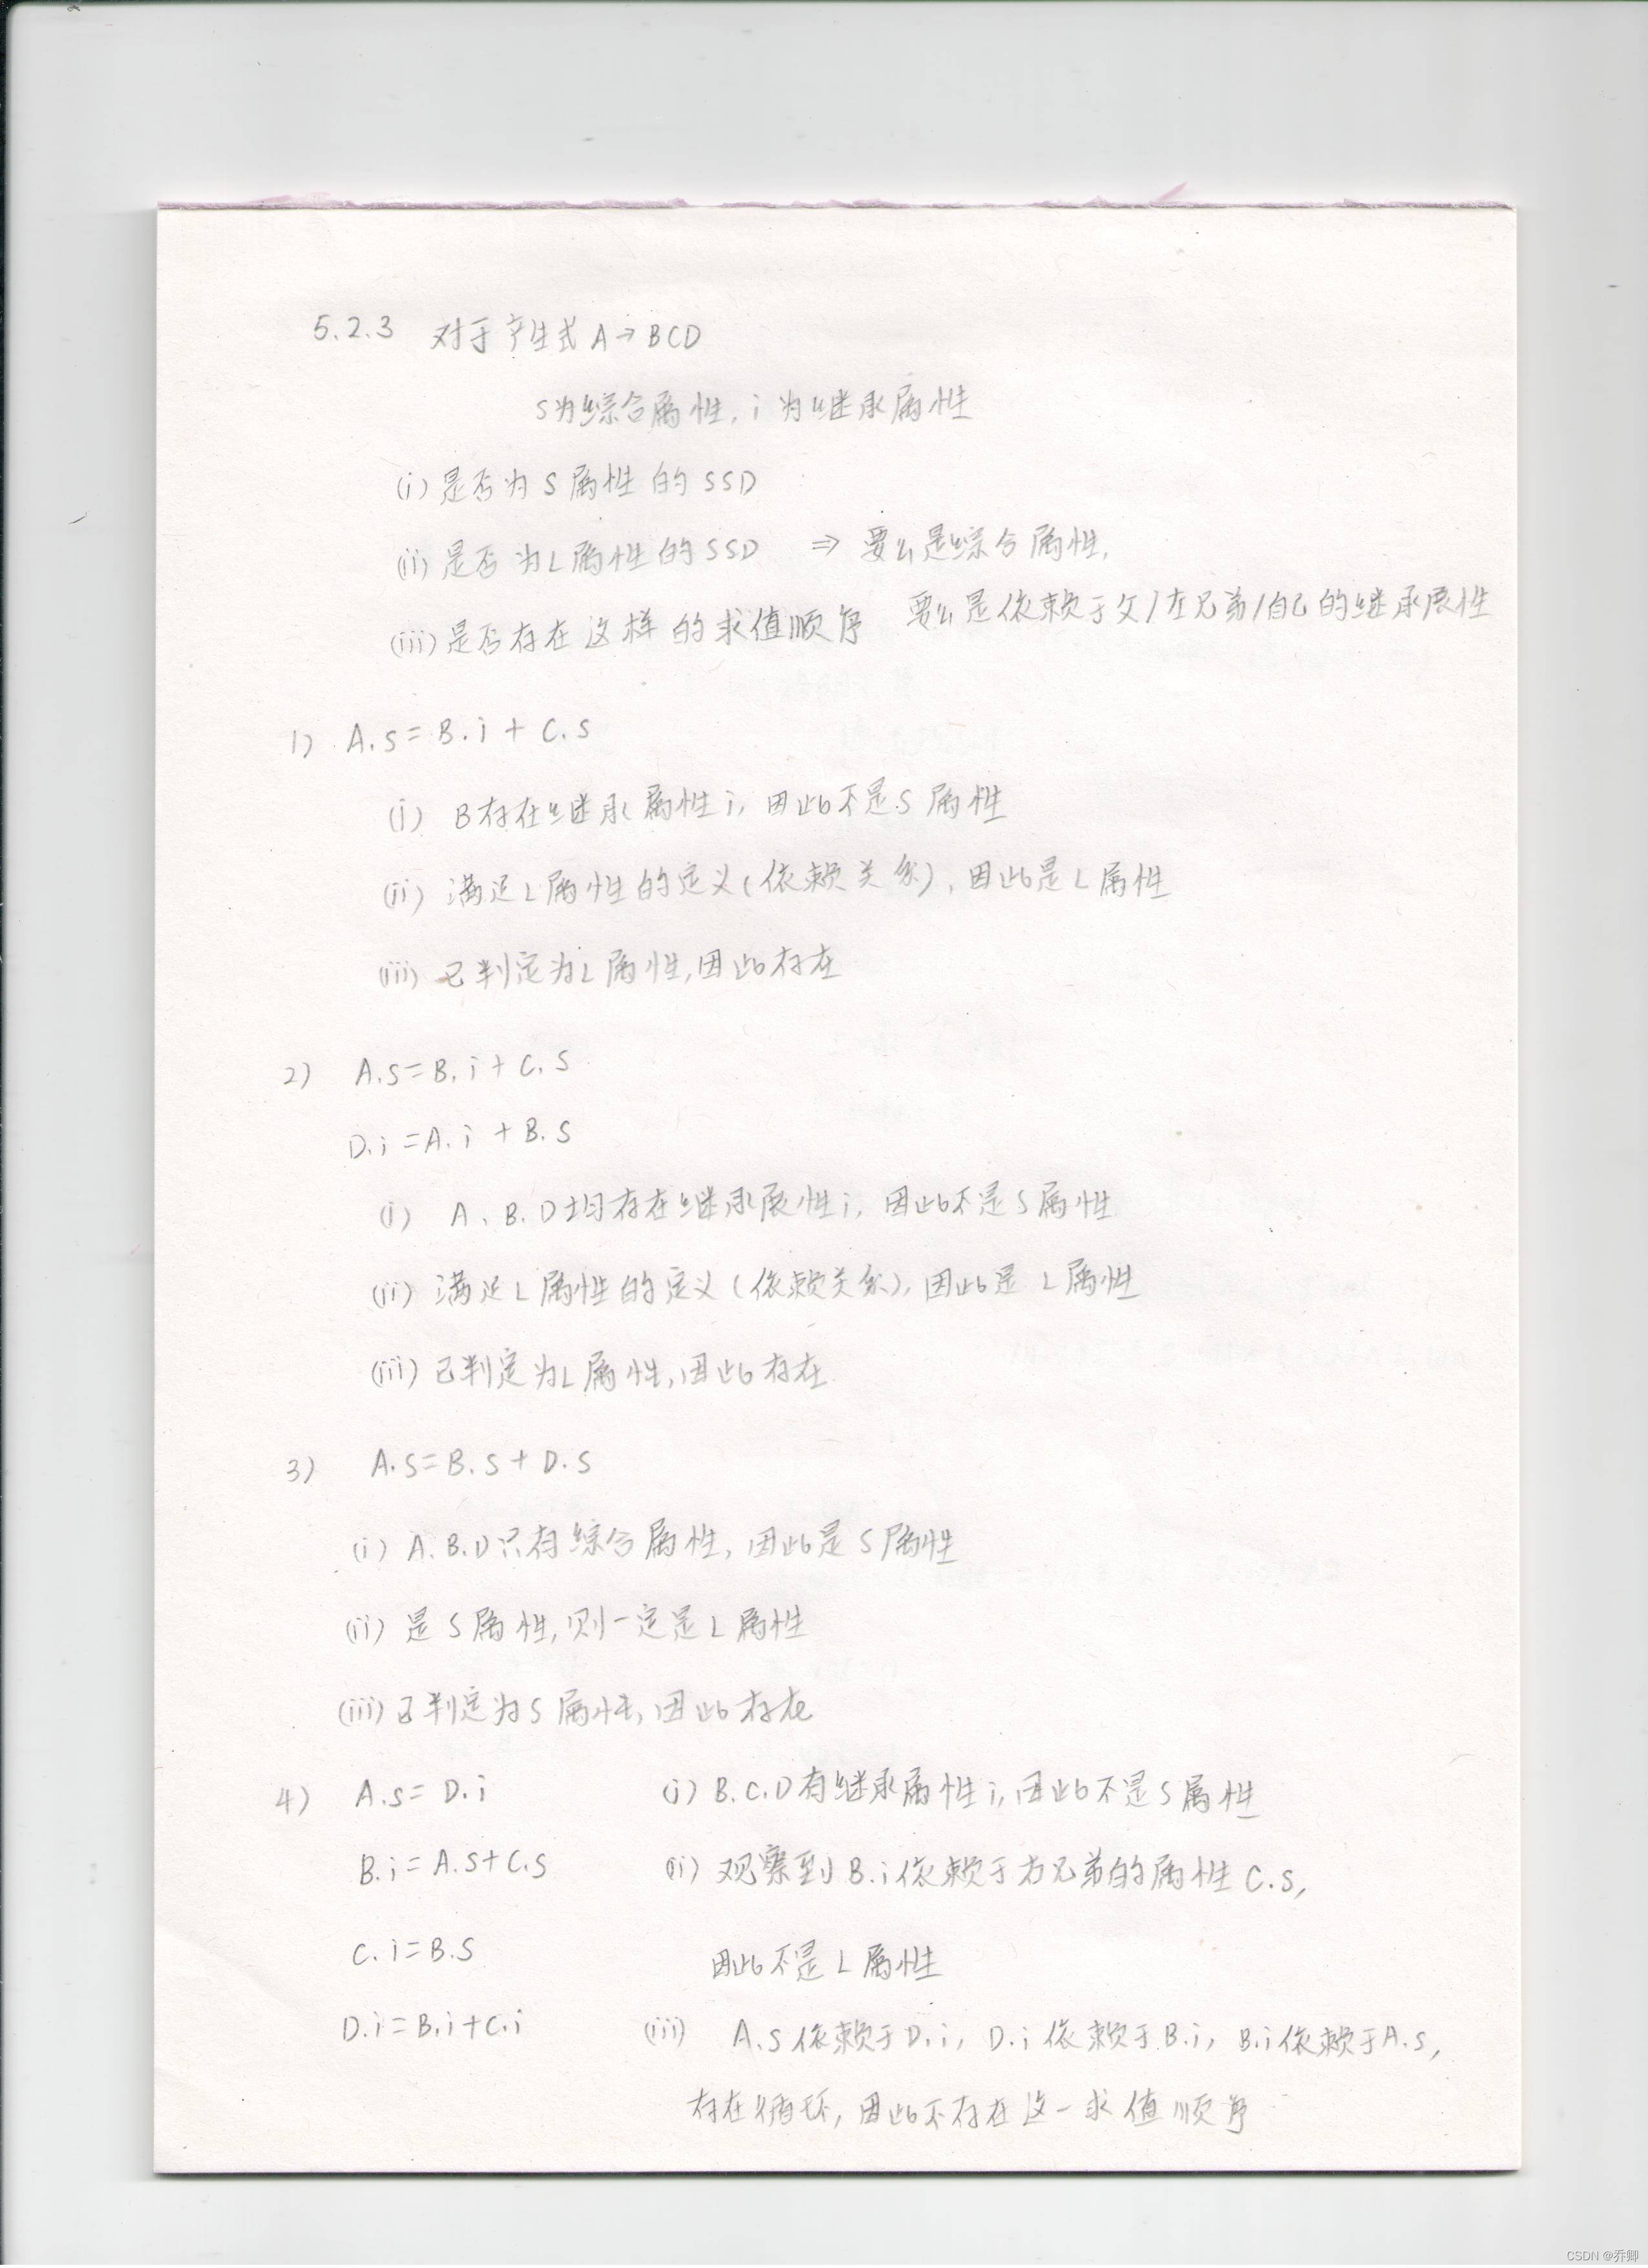 5.2.3 对于产生式 A→BCD
S为综合属性, i 为继承属性
(i) 是否为 S 属性 的 SSD
(ii) 是否 为 L 属性 的 SSD ⇒ 要么是综合属性,
要么是依赖于父/左兄弟/自己的继承属性
(iii) 是否存在这样的求值顺序
1) A.s = B.i + C.s
(i) B存在继承属性 i, 因此不是 S 属性
(ii) 满足 L 属性的定义 (依赖关系), 因此是 L 属性
(iii) 已判定为 L 属性, 因此存在
2) A.s = B.i + C.s
D.i = A.i + B.s
(i) A、B、D 均存在继承属性 i, 因此不是 S 属性
(ii) 满足 L 属性的定义 (依赖关系), 因此是 L 属性
(iii) 已判定为 L 属性, 因此存在
3) A.s = B.s + D.s
(i) A.B.D 只有综合属性, 因此是 S 属性
(ii) 是 S 属性, 则一定是 L 属性
(iii) 已判定为 S 属性, 因此存在
4) A.s = D.i (i) B.C.D 有继承属性 i, 因此不是 S 属性
B.i = A.s + C.s (ii) 观察到 B.i 依赖于右兄弟的属性 C.s,
C.i = B.s 因此不是 L 属性
D.i = B.i + C.i (iii) A.s 依赖于 D.i, D.i 依赖于 B.i, B.i 依赖于 A.s,
存在循环, 因此不存在这一求值顺序
CSDN @乔卿